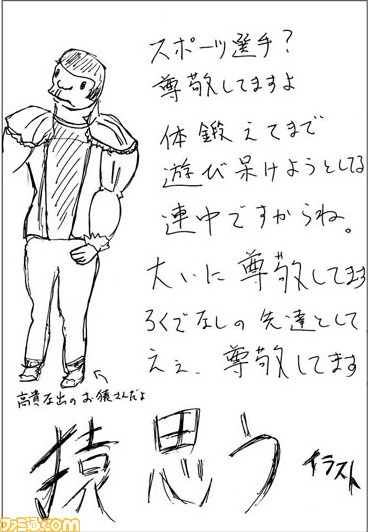 スポーツ選手？
尊敬してますよ
体鍛えてまで
遊び呆けようとしてる
連中ですからね。
大いに尊敬してます
ろくでなしの先達として
ええ、尊敬してます
高貴な出のお猿さんだよ
猿思う
イラスト
ファミ通.com